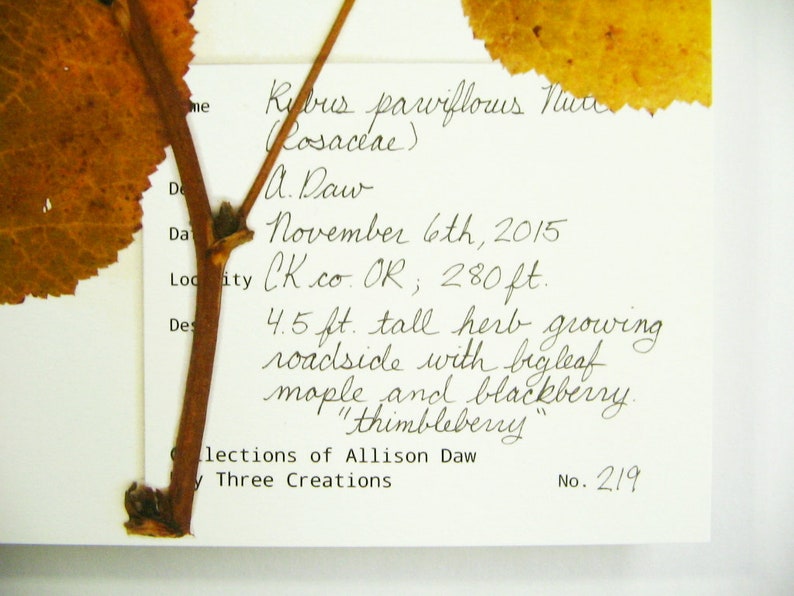 Rubus parviflorus Nutt
(Rosaceae)
A. Daw
November 6th, 2015
CK co. OR; 280 ft.
4.5 ft. tall herb growing
roadside with bigleaf
maple and blackberry.
"thimbleberry"
Collections of Allison Daw
Three Creations No. 219